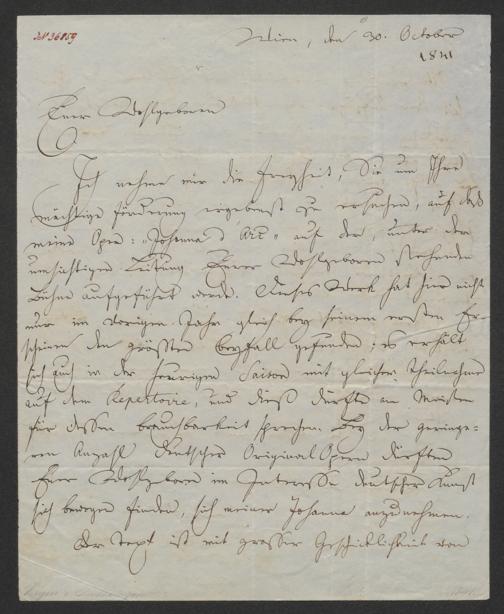 N 36859
Wien, den 30. October
1841
Euer Wohlgeboren
Ich nehme mir die Freyheit, Sie um Ihre
mächtige Förderung ergebenst zu ersuchen, auf daß
meine Oper: „Johanna d'Arc“ auf der, unter der
umsichtigen Leitung Euer Wohlgeboren stehenden
Bühne aufgeführt werde. Dieses Werk hat hier nicht
nur im vorigen Jahr gleich bey seinem ersten Er-
scheinen den größten Beyfall gefunden; es erhält
sich auch in der heurigen Saison mit gleicher Theilnahme
auf dem Repertoire, und dieß dürfte am Meisten
für dessen Brauchbarkeit sprechen. Bey der geringe-
ren Anzahl deutscher Original Opern dürften
Euer Wohlgeboren im Interesse deutscher Kunst
sich bewogen finden, sich meiner Johanna anzunehmen.
Der Text ist mit grosser Geschicklichkeit von